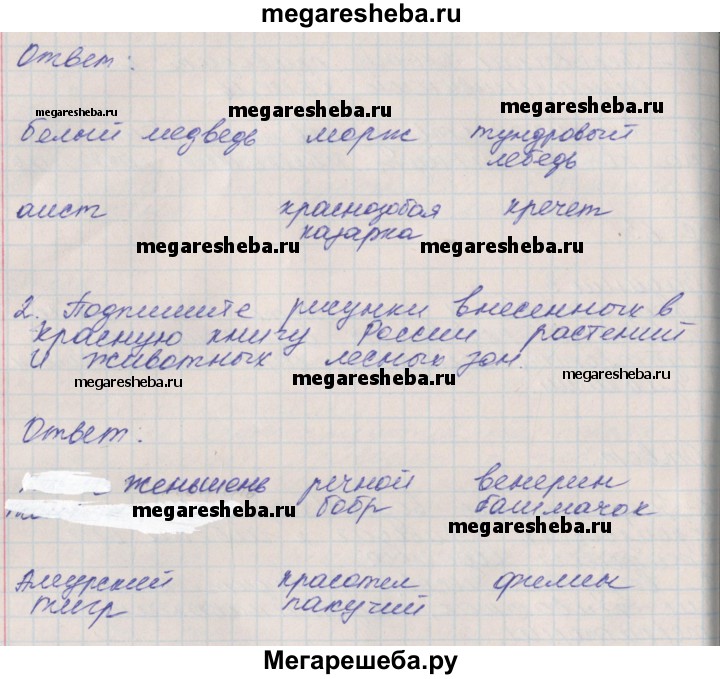 megaresheba.ru
Ответ:
megaresheba.ru megaresheba.ru megaresheba.ru
белый медведь морж тундровый
лебедь
аист краснозобая кречет
казарка
megaresheba.ru megaresheba.ru
2. Подпишите рисунки внесенных в
красную книгу России растений
и животных лесных зон.
megaresheba.ru megaresheba.ru megaresheba.ru
Ответ:
женьшень речной венерин
бобр башмачок
megaresheba.ru megaresheba.ru
Амурский красотел филин
тигр пахучий
Мегарешеба.ру